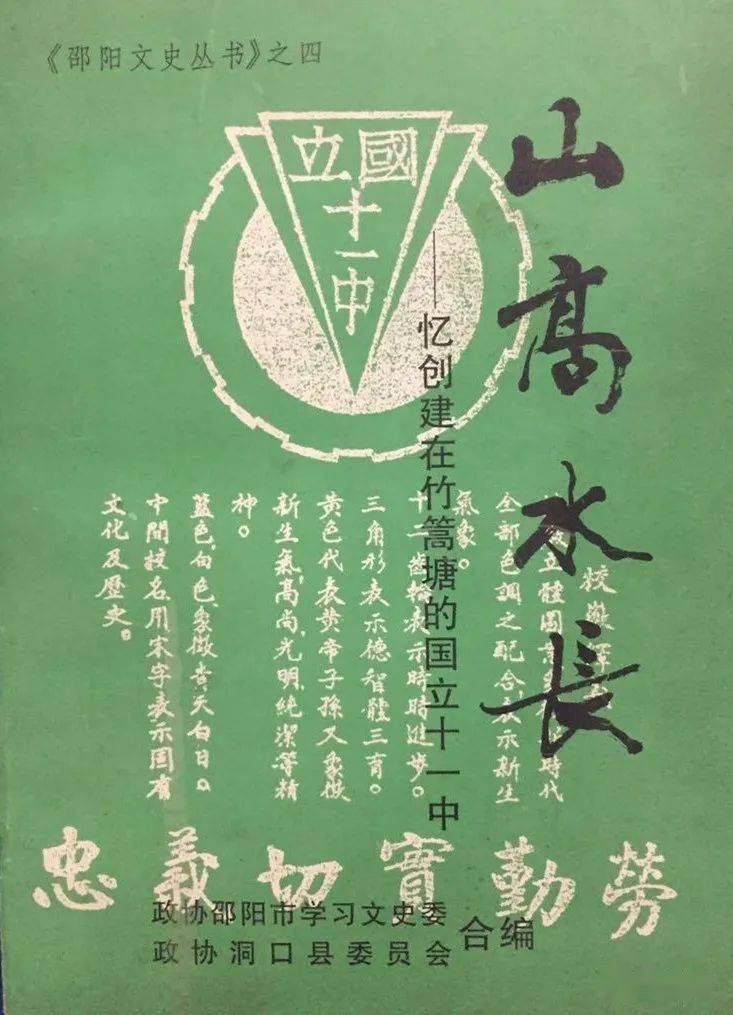 《邵阳文史丛书》之四
國立
十一中
山高水長
——忆创建在竹篙塘的国立十一中
校徽
立體圖 時代
全部色調之配合,表示新生
氣象。
十二齒輪表示時時進步。
三角形表示德智體三育。
黄色代表黄帝子孫又象徵
新生氣,高尚,光明,純潔等精
神。
藍色,白色,象徵青天白日。
中間校名用宋字表示固有
文化及歷史。
忠義切實勤勞
政协邵阳市学习文史委
政协洞口县委员会
合编